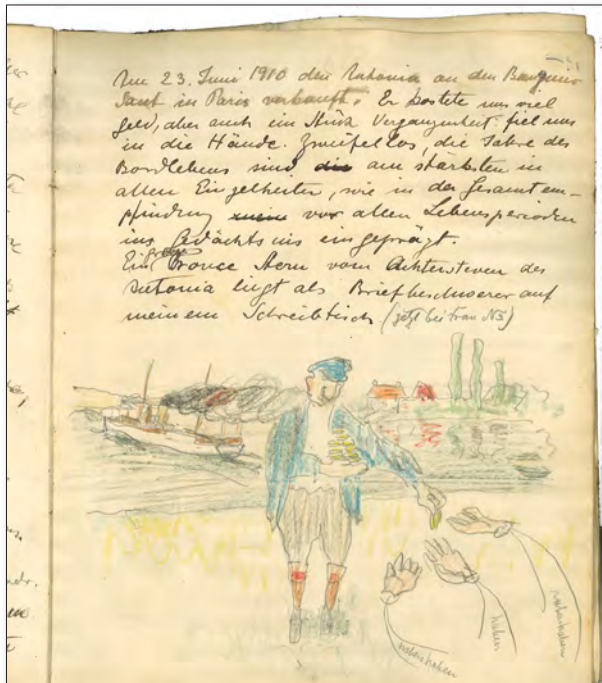 Am 23. Juni 1910 den Autonia an den Banquier
Sant in Paris verkauft. Er kostete uns viel
Geld, aber auch ein Stück Vergangenheit fiel uns
in die Hände. Zweifellos, die Jahre des
Bordlebens sind die am stärksten in
allen Einzelheiten, wie in der Gesamtem-
pfindung vor allen Lebensperioden
ins Gedächtnis eingeprägt.
Ein großer Bronce Stern vom Achtersteven des
Autonia liegt als Briefbeschwerer auf
meinem Schreibtisch. (jetzt bei Frau NS)
haben haben
haben
haben haben